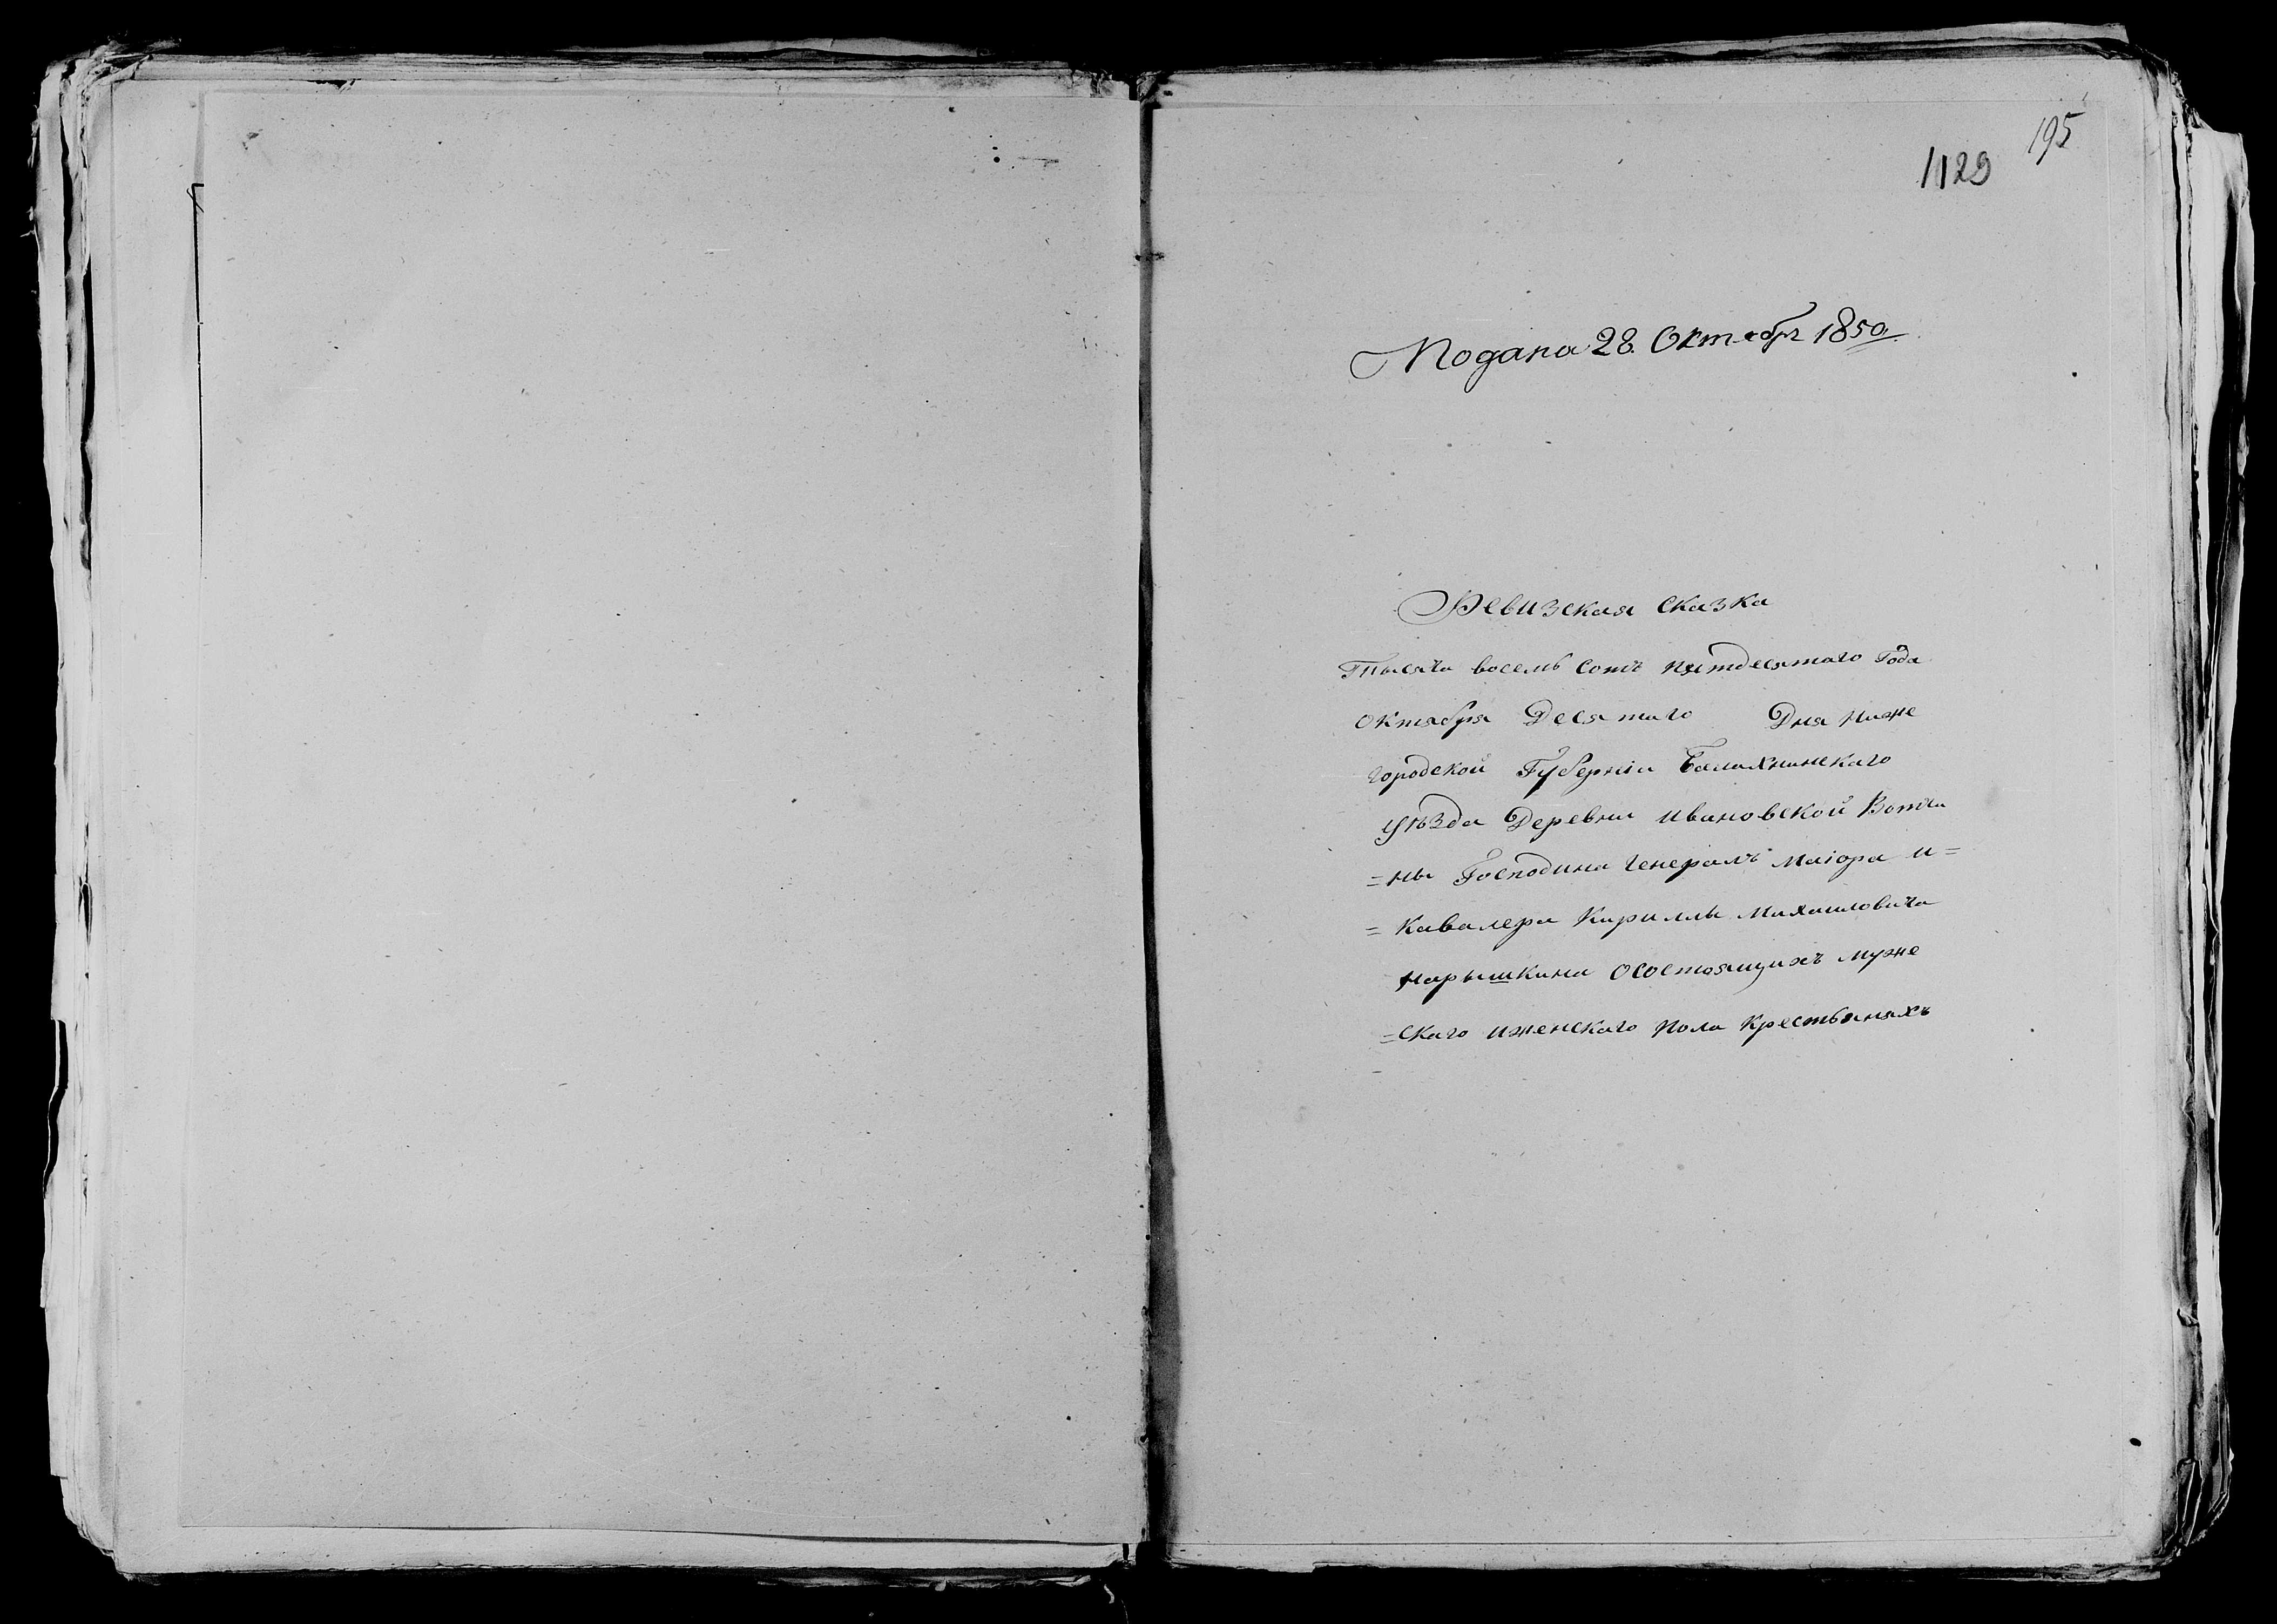 195
1129
Подана 28. Октябр 1850.
Ревизская сказка
Тысяча восемь сотъ пятдесятаго Года
октября Десятаго Дня Ниже
городской Губерніи Балахнинскаго
уѣзда Деревни Ивановской Вотчи
=ны Господина Генералъ Маіора и=
=Кавалера Кириллы Михаиловича
Нарышкина осостоящихъ муже
=скаго иженскаго пола крестьянахъ